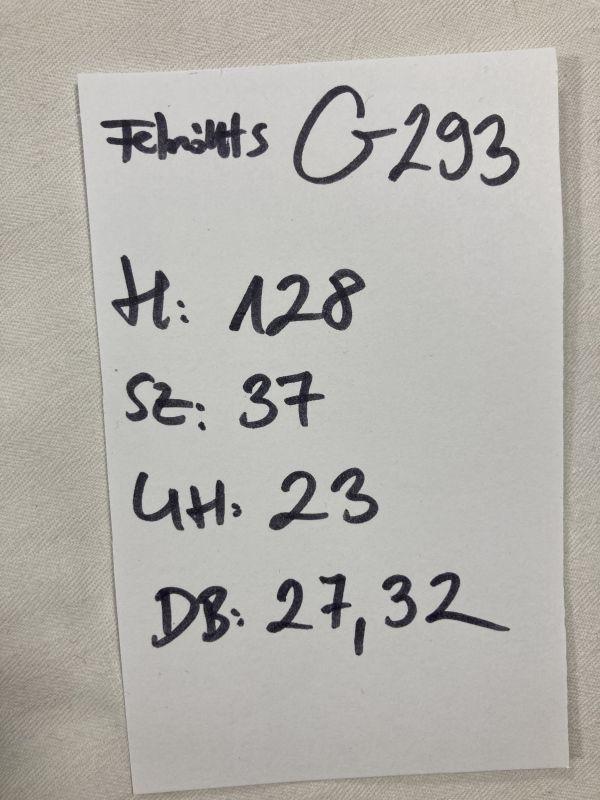 Felnőtt S G293
H: 128
SZ: 37
UH: 23
DB: 27,32